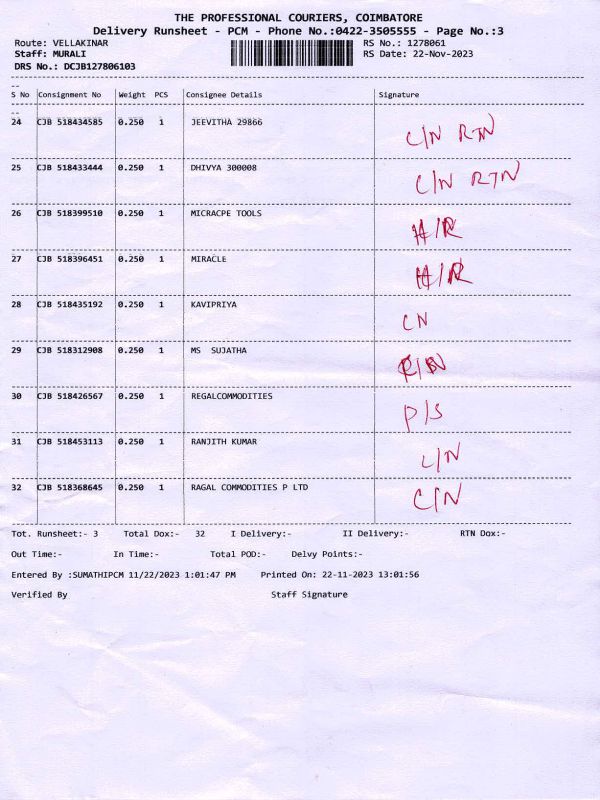 THE PROFESSIONAL COURIERS, COIMBATORE
Delivery Runsheet - PCM - Phone No.:0422-3505555 - Page No.:3
Route: VELLAKINAR RS No.: 1278061
Staff: MURALI RS Date: 22-Nov-2023
DRS No.: DCJB127806103
S No Consignment No Weight PCS Consignee Details Signature
24 CJB 518434585 0.250 1 JEEVITHA 29866 C/N RTN
25 CJB 518433444 0.250 1 DHIVYA 300008 C/N RTN
26 CJB 518399510 0.250 1 MICRACPE TOOLS H/R
27 CJB 518396451 0.250 1 MIRACLE H/R
28 CJB 518435192 0.250 1 KAVIPRIYA CN
29 CJB 518312908 0.250 1 MS SUJATHA
30 CJB 518426567 0.250 1 REGALCOMMODITIES P/S
31 CJB 518453113 0.250 1 RANJITH KUMAR L/N
32 CJB 518368645 0.250 1 RAGAL COMMODITIES P LTD C/N
Tot. Runsheet:- 3 Total Dox:- 32 I Delivery:- II Delivery:- RTN Dox:-
Out Time:- In Time:- Total POD:- Delvy Points:-
Entered By :SUMATHIPCM 11/22/2023 1:01:47 PM Printed On: 22-11-2023 13:01:56
Verified By Staff Signature